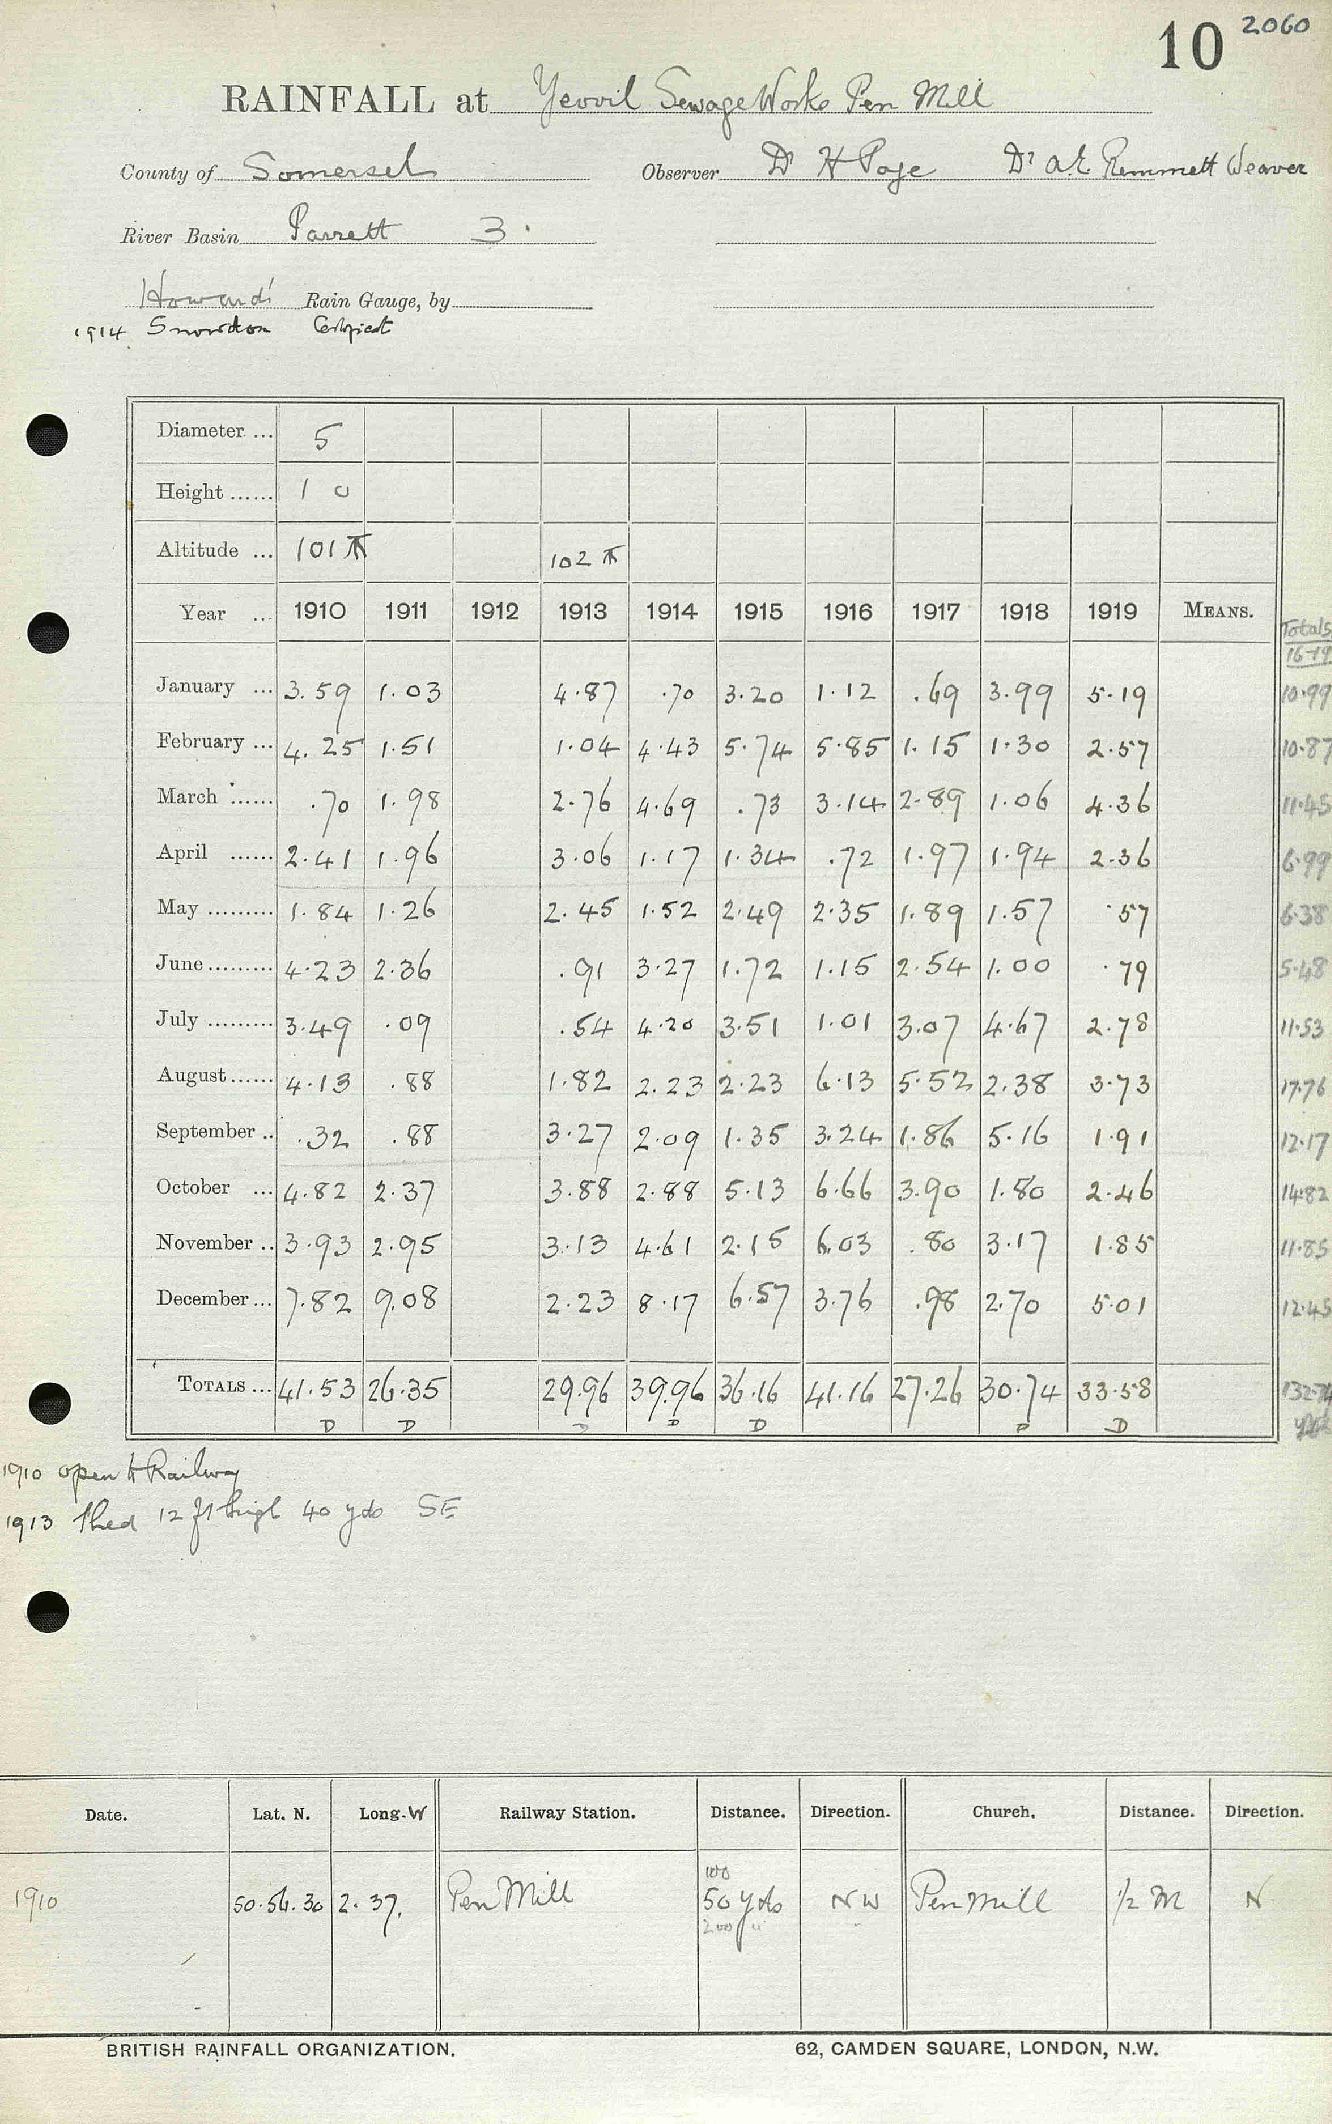 10 2060
RAINFALL at Yeovil Sewage Works Pen Mill
County of Somerset Observer Dr H Page Dr A E Remmett Weaver
River Basin Parrett 3.
Howard's Rain Gauge, by
1914 Snowdon
Diameter ... 5
Height ...... 1 0
Altitude ... 101 ft 102 ft
Year ... 1910 1911 1912 1913 1914 1915 1916 1917 1918 1919 MEANS. Totals
16-19
January ... 3.59 1.03 4.87 .70 3.20 1.12 .69 3.99 5.19 10.99
February ... 4.25 1.51 1.04 4.43 5.74 5.85 1.15 1.30 2.57 10.87
March ...... .70 1.98 2.76 4.69 .73 3.14 2.89 1.06 4.36 11.45
April ...... 2.41 1.96 3.06 1.17 1.34 .72 1.97 1.94 2.36 6.99
May ......... 1.84 1.26 2.45 1.52 2.49 2.35 1.89 1.57 .57 6.38
June ......... 4.23 2.36 .91 3.27 1.72 1.15 2.54 1.00 .79 5.48
July ......... 3.49 .09 .54 4.20 3.51 1.01 3.07 4.67 2.78 11.53
August ...... 4.13 .88 1.82 2.23 2.23 6.13 5.52 2.38 3.73 17.76
September .. .32 .88 3.27 2.09 1.35 3.24 1.86 5.16 1.91 12.17
October ... 4.82 2.37 3.88 2.88 5.13 6.66 3.90 1.80 2.46 14.82
November .. 3.93 2.95 3.13 4.61 2.15 6.03 .80 3.17 1.85 11.85
December ... 7.82 9.08 2.23 8.17 6.57 3.76 .98 2.70 5.01 12.45
TOTALS ... 41.53 26.35 29.96 39.96 36.16 41.16 27.26 30.74 33.58 132.74
D D D D D D D
1910 open to Railway
1913 Shed 12 ft high 40 yds SE
Date. Lat. N. Long. W Railway Station. Distance. Direction. Church. Distance. Direction.
100
1910 50.56.30 2.37. Pen Mill 50 yds NW Pen Mill 1/2 M N
200 "
BRITISH RAINFALL ORGANIZATION. 62, CAMDEN SQUARE, LONDON, N.W.